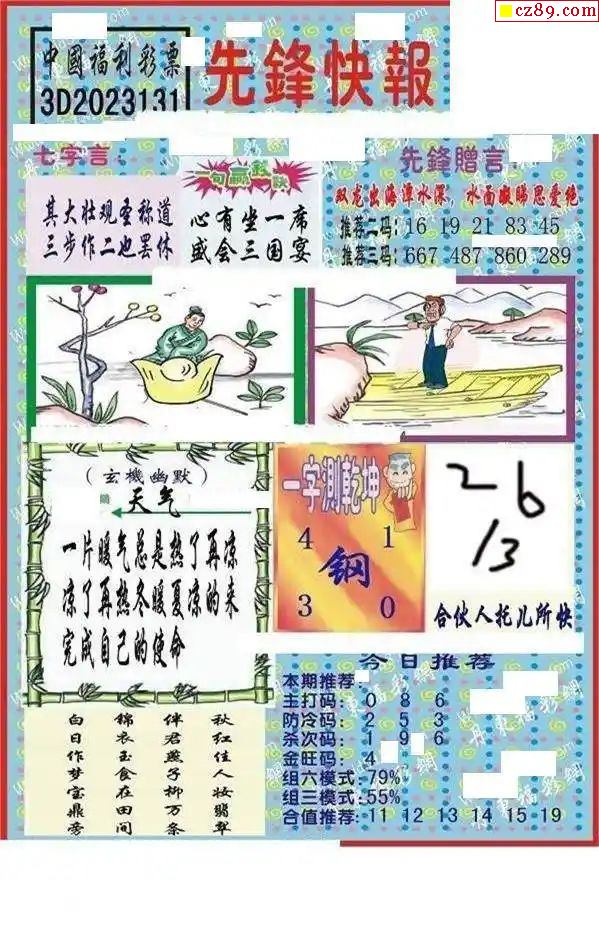 cz89.com
中國福利彩票
3D2023131
先鋒快報
七字言：
其大壮观圣称道
三步作二也罢休
心有坐一席
盛会三国宴
先鋒贈言：
双龙出海潭水深，水面
推荐二码：16 19 21 83 45
推荐三码：667 487 860 289
（玄機幽默）
天气
一片暖气总是热了再凉
凉了再热冬暖夏凉的来
完成自己的使命
一字測乾坤
4 1
鋼
3 0
26
13
合伙人托儿所快
今日推荐
本期推荐：
主打码：0 8 6
防冷码：2 5 3
杀次码：1 9 6
金旺码：4
组六模式：79%
组三模式：55%
合值推荐：11 12 13 14 15 19
秋红佳人妆翡翠
伴君燕子柳万条
锦衣玉食在田间
白日作梦宝鼎旁